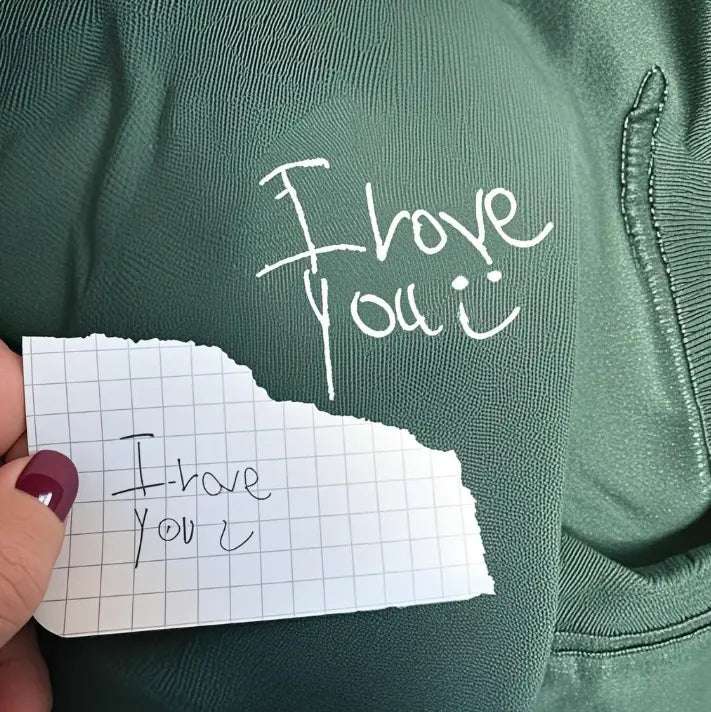 I love
you
I love
you